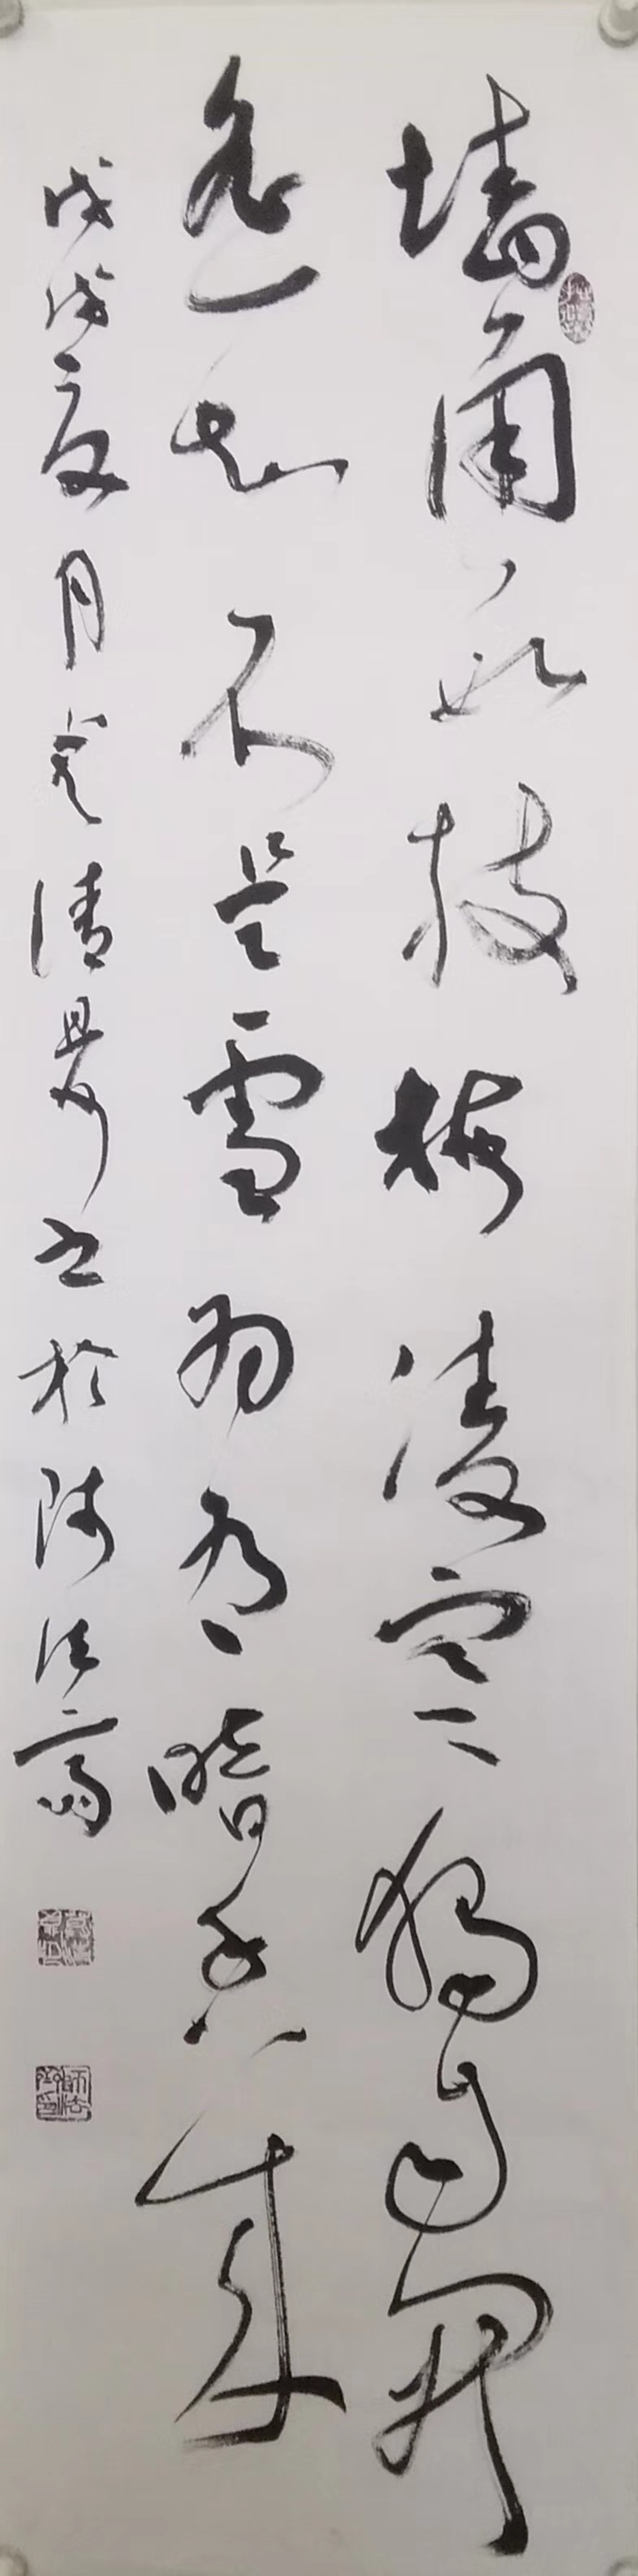 墙角数枝梅凌寒独自开
遥知不是雪为有暗香来
戊戌夏月
清
书于师法斋
师法